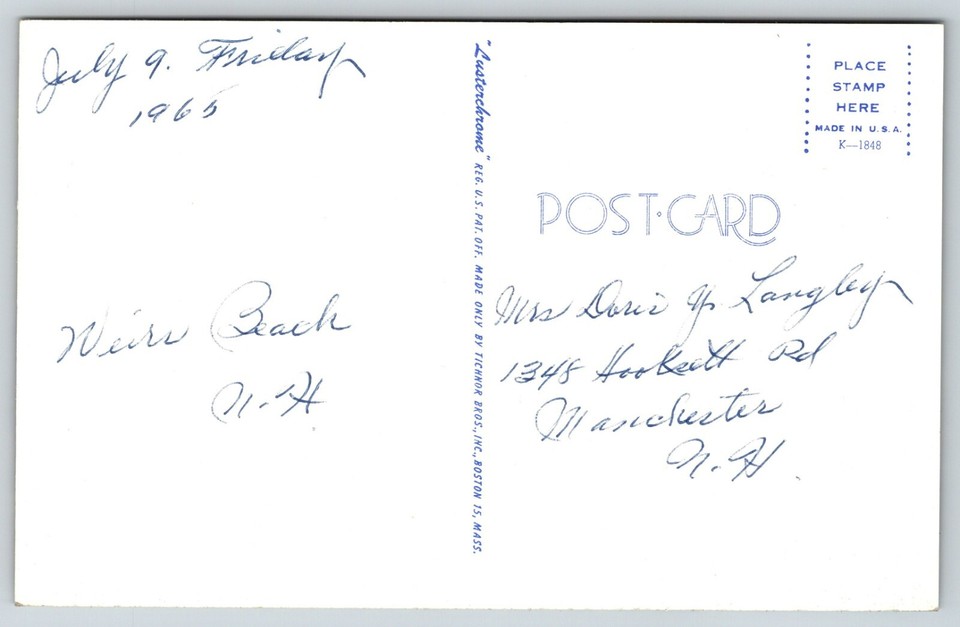 July 9. Friday
1965
Weirs Beach
N.H.
"Lusterchrome" REG. U.S. PAT. OFF. MADE ONLY BY TICHNOR BROS., INC., BOSTON 15, MASS.
PLACE
STAMP
HERE
MADE IN U.S.A.
K—1848
POST·CARD
Mrs Doris Y. Langley
1348 Hooksett Rd
Manchester
N.H.